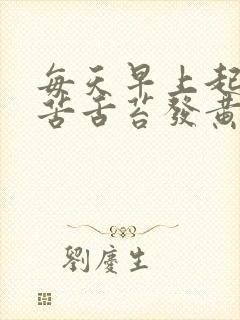 每天早上起
苦舌苔發黃
劉慶生